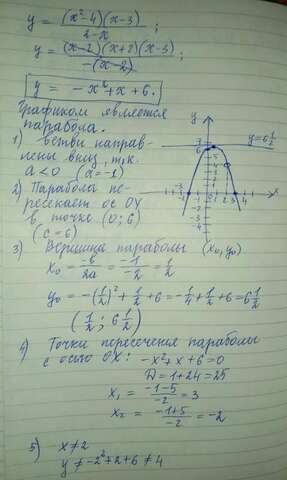 y = (x²-4)(x-3) / 2-x ;
y = (x-2)(x+2)(x-3) / -(x-2) ;
y = -x²+x+6.
Графиком является
парабола.
1) Ветви направ-
лены вниз, т.к.
a<0 (a=-1)
2) Парабола пе-
ресекает ось OY
в точке (0; 6)
(c=6)
y
7
6
y=6½
x
3) Вершина параболы (x₀, y₀)
x₀ = -b/2a = -1/-2 = 1/2
y₀ = -(1/2)²+1/2+6 = -1/4+1/2+6 = 6 1/2
(1/2; 6 1/2)
4) Точки пересечения параболы
с осью OX: -x²+x+6=0
D=1+24=25
x₁ = -1-5/-2 = 3
x₂ = -1+5/-2 = -2
5) x≠2
y≠-2²+2+6≠4